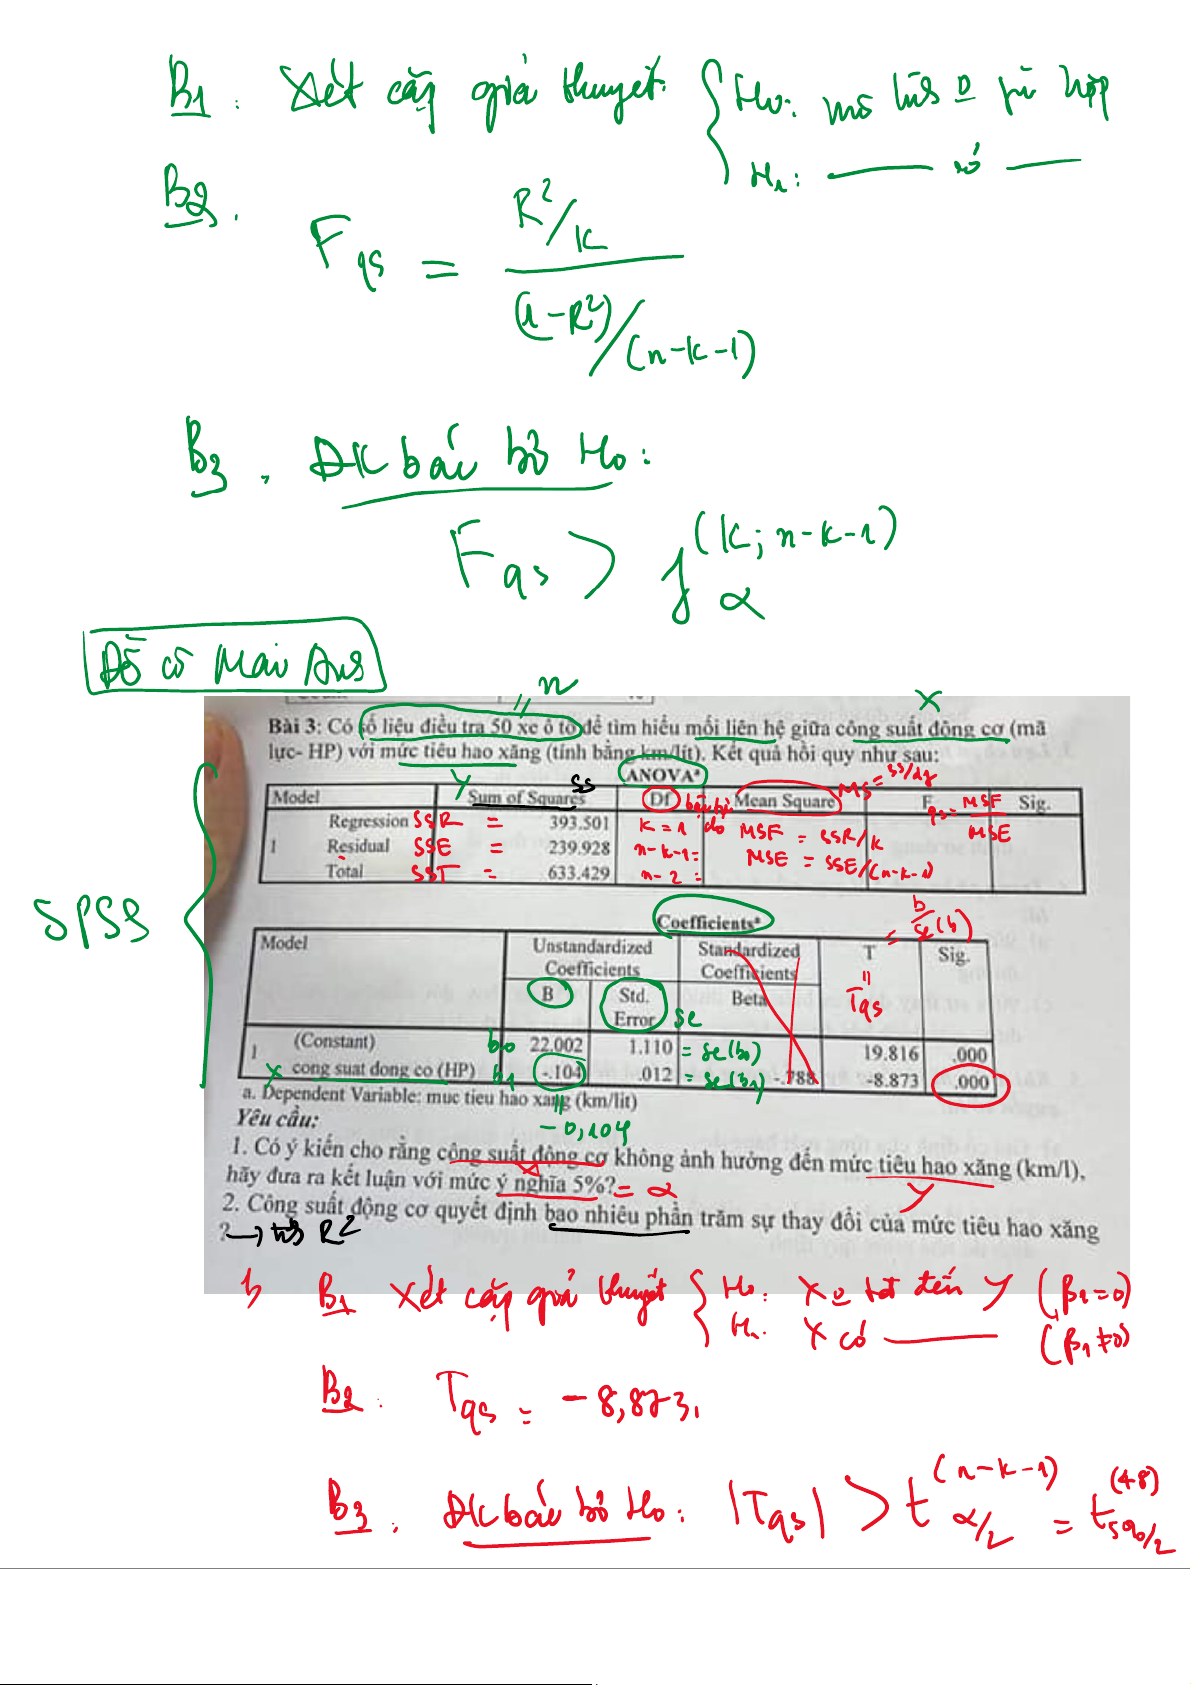 B1. Xét cặp giả thuyết: { H0: mô hình o phù hợp
H1: —— có ——
B2. Fqs = R²/k / (1-R²)/(n-k-1)
B3. ĐK bác bỏ H0:
Fqs > f α (k; n-k-1)
Đề cô Mai Anh
n
X
Bài 3: Có số liệu điều tra 50 xe ô tô để tìm hiểu mối liên hệ giữa công suất động cơ (mã
lực- HP) với mức tiêu hao xăng (tính bằng km/lít). Kết quả hồi quy như sau:
Y SS ANOVAᵃ MS = SS/df
Model Sum of Squares Df bậc tự do Mean Square F qs = MSF/MSE Sig.
Regression SSR = 393.501 k = 1 MSF = SSR/k
1 Residual SSE = 239.928 n-k-1= MSE = SSE/(n-k-1)
Total SST = 633.429 n-2 =
SPSS
Coefficientsᵃ = b/se(b)
Model Unstandardized Coefficients Standardized Coefficients T Sig.
B Std. Error se Beta = Tqs
1 (Constant) b0 22.002 1.110 = se(b0) 19.816 .000
X cong suat dong co (HP) b1 -.104 .012 = se(b1) -.788 -8.873 .000
a. Dependent Variable: muc tieu hao xang (km/lit)
= -0,104
Yêu cầu:
1. Có ý kiến cho rằng công suất động cơ không ảnh hưởng đến mức tiêu hao xăng (km/l),
X
hãy đưa ra kết luận với mức ý nghĩa 5%? = α Y
2. Công suất động cơ quyết định bao nhiêu phần trăm sự thay đổi của mức tiêu hao xăng
? → R²
B1 Xét cặp giả thuyết { H0: X o tđ đến Y (β1=0)
H1: X có —— (β1≠0)
B2. Tqs = -8,873.
B3. ĐK bác bỏ H0: |Tqs| > t α/2 (n-k-1) = t 5%/2 (48)